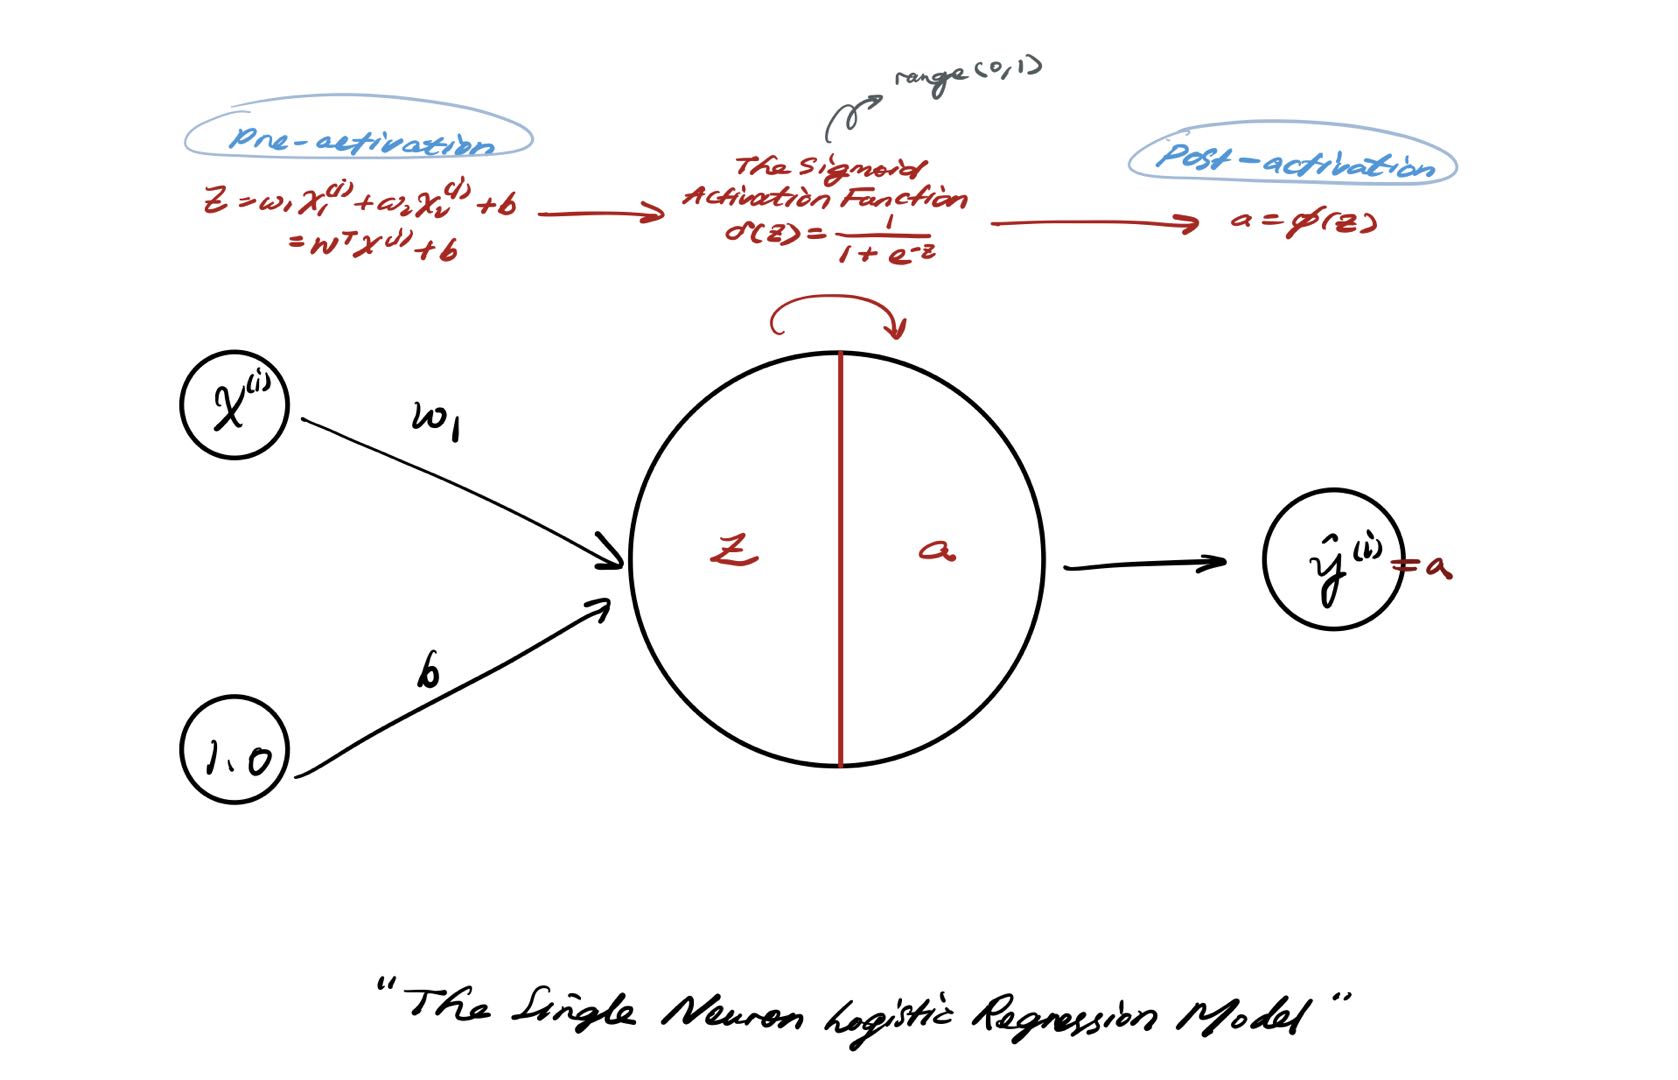 range(0,1)
pre-activation
Z = w₁x₁⁽ⁱ⁾ + w₂x₂⁽ⁱ⁾ + b
= wᵀx⁽ⁱ⁾ + b
The Sigmoid
Activation Function
σ(z) = 1 / (1 + e⁻ᶻ)
Post-activation
a = ϕ(z)
x⁽ⁱ⁾
w₁
z
a
ŷ⁽ⁱ⁾ = a
b
1.0
"The Single Neuron Logistic Regression Model"